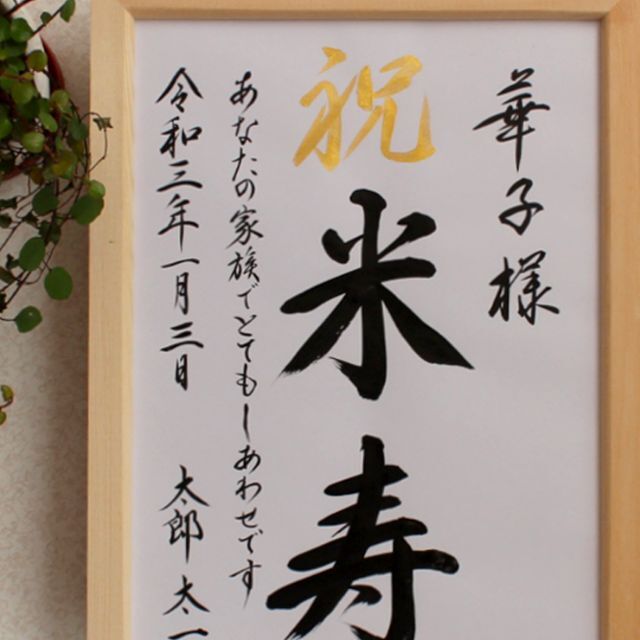 華子様
祝
米寿
あなたの家族でとてもしあわせです
令和三年一月三日 太郎 太一